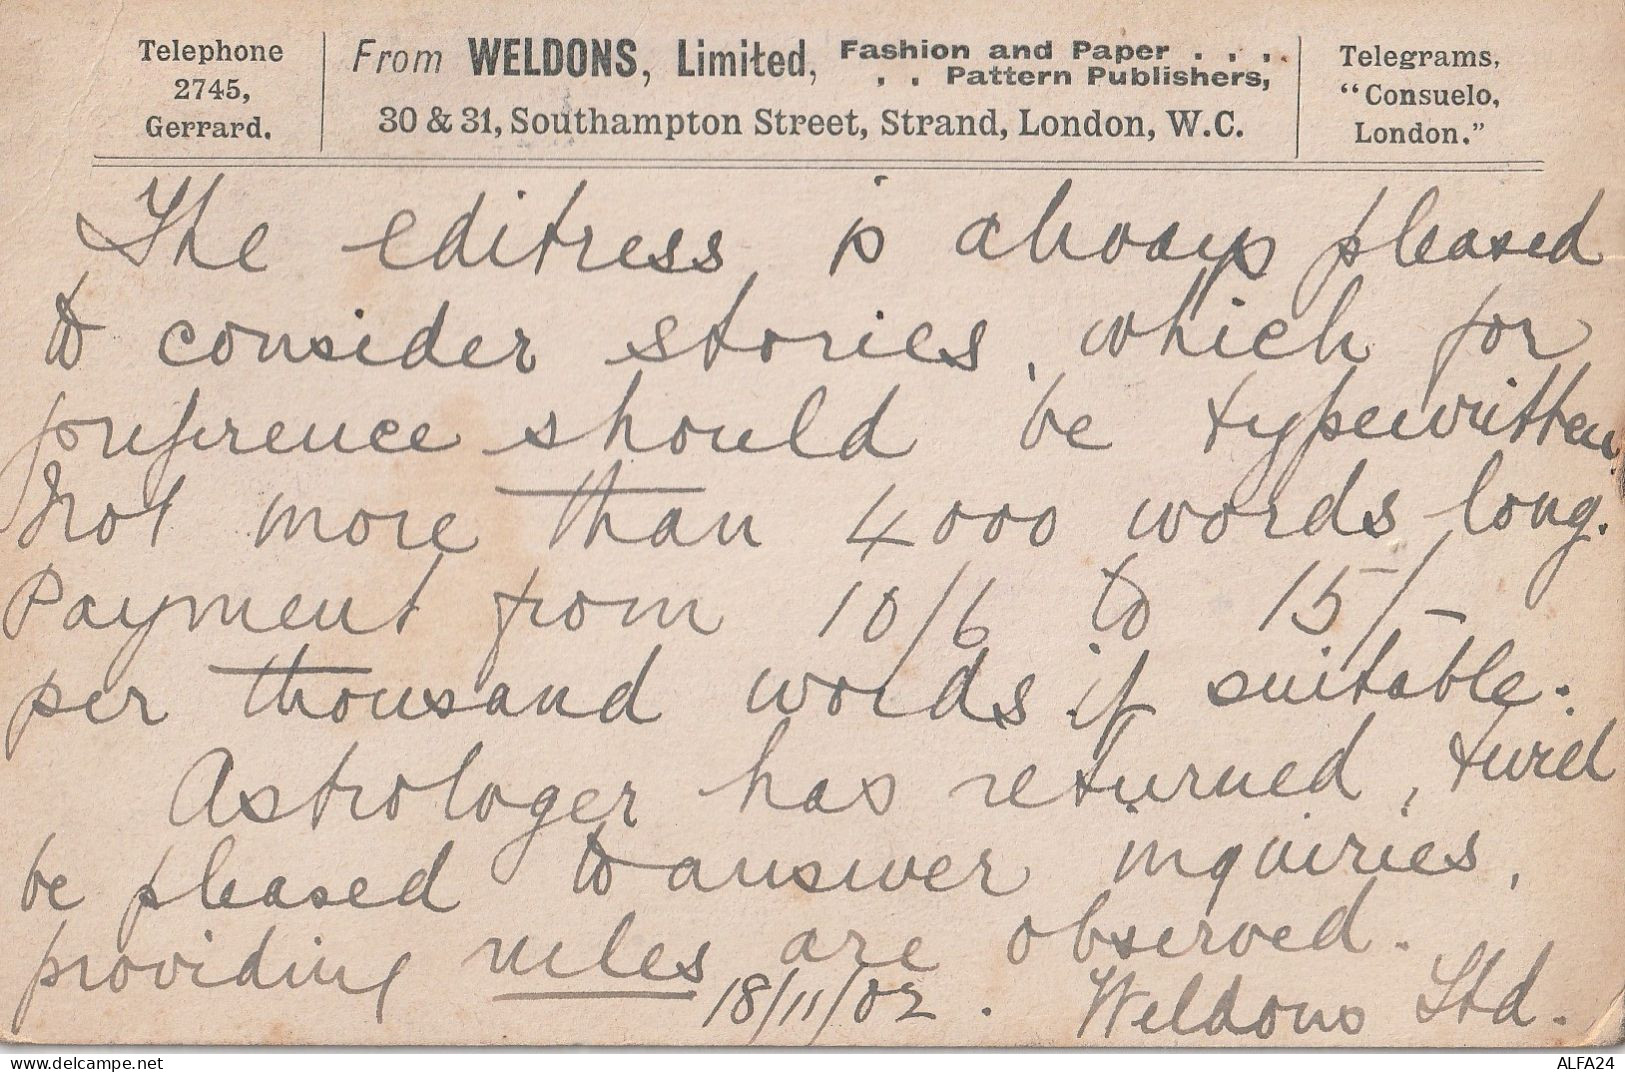 Telephone
2745,
Gerrard.
From WELDONS, Limited, Fashion and Paper . . . .
. . Pattern Publishers,
30 & 31, Southampton Street, Strand, London, W.C.
Telegrams,
"Consuelo,
London."
The editress is always pleased
to consider stories, which for
preference should be typewritten.
Not more than 4000 words long.
Payment from 10/6 to 15/-
per thousand words if suitable.
Astrologer has returned,
be pleased to answer inquiries,
providing rules are observed.
18/11/02. Weldons Ltd.
ALFA24